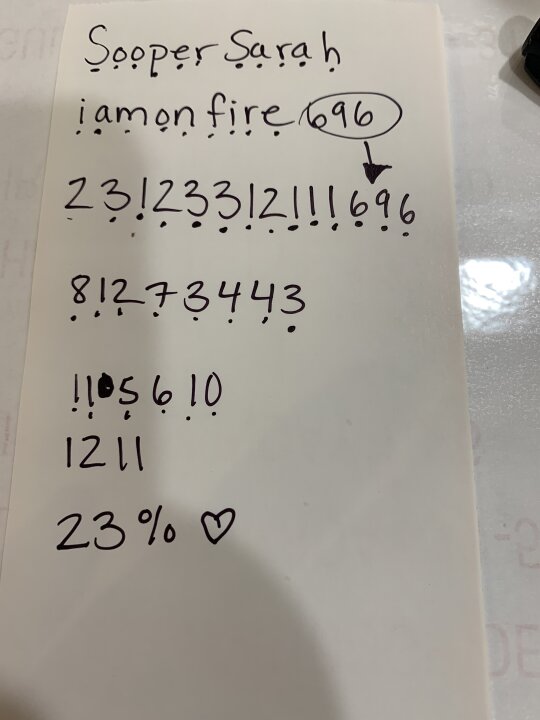 Sooper Sarah
iamonfire 696
23123312111696
81273443
115610
1211
23% ♡